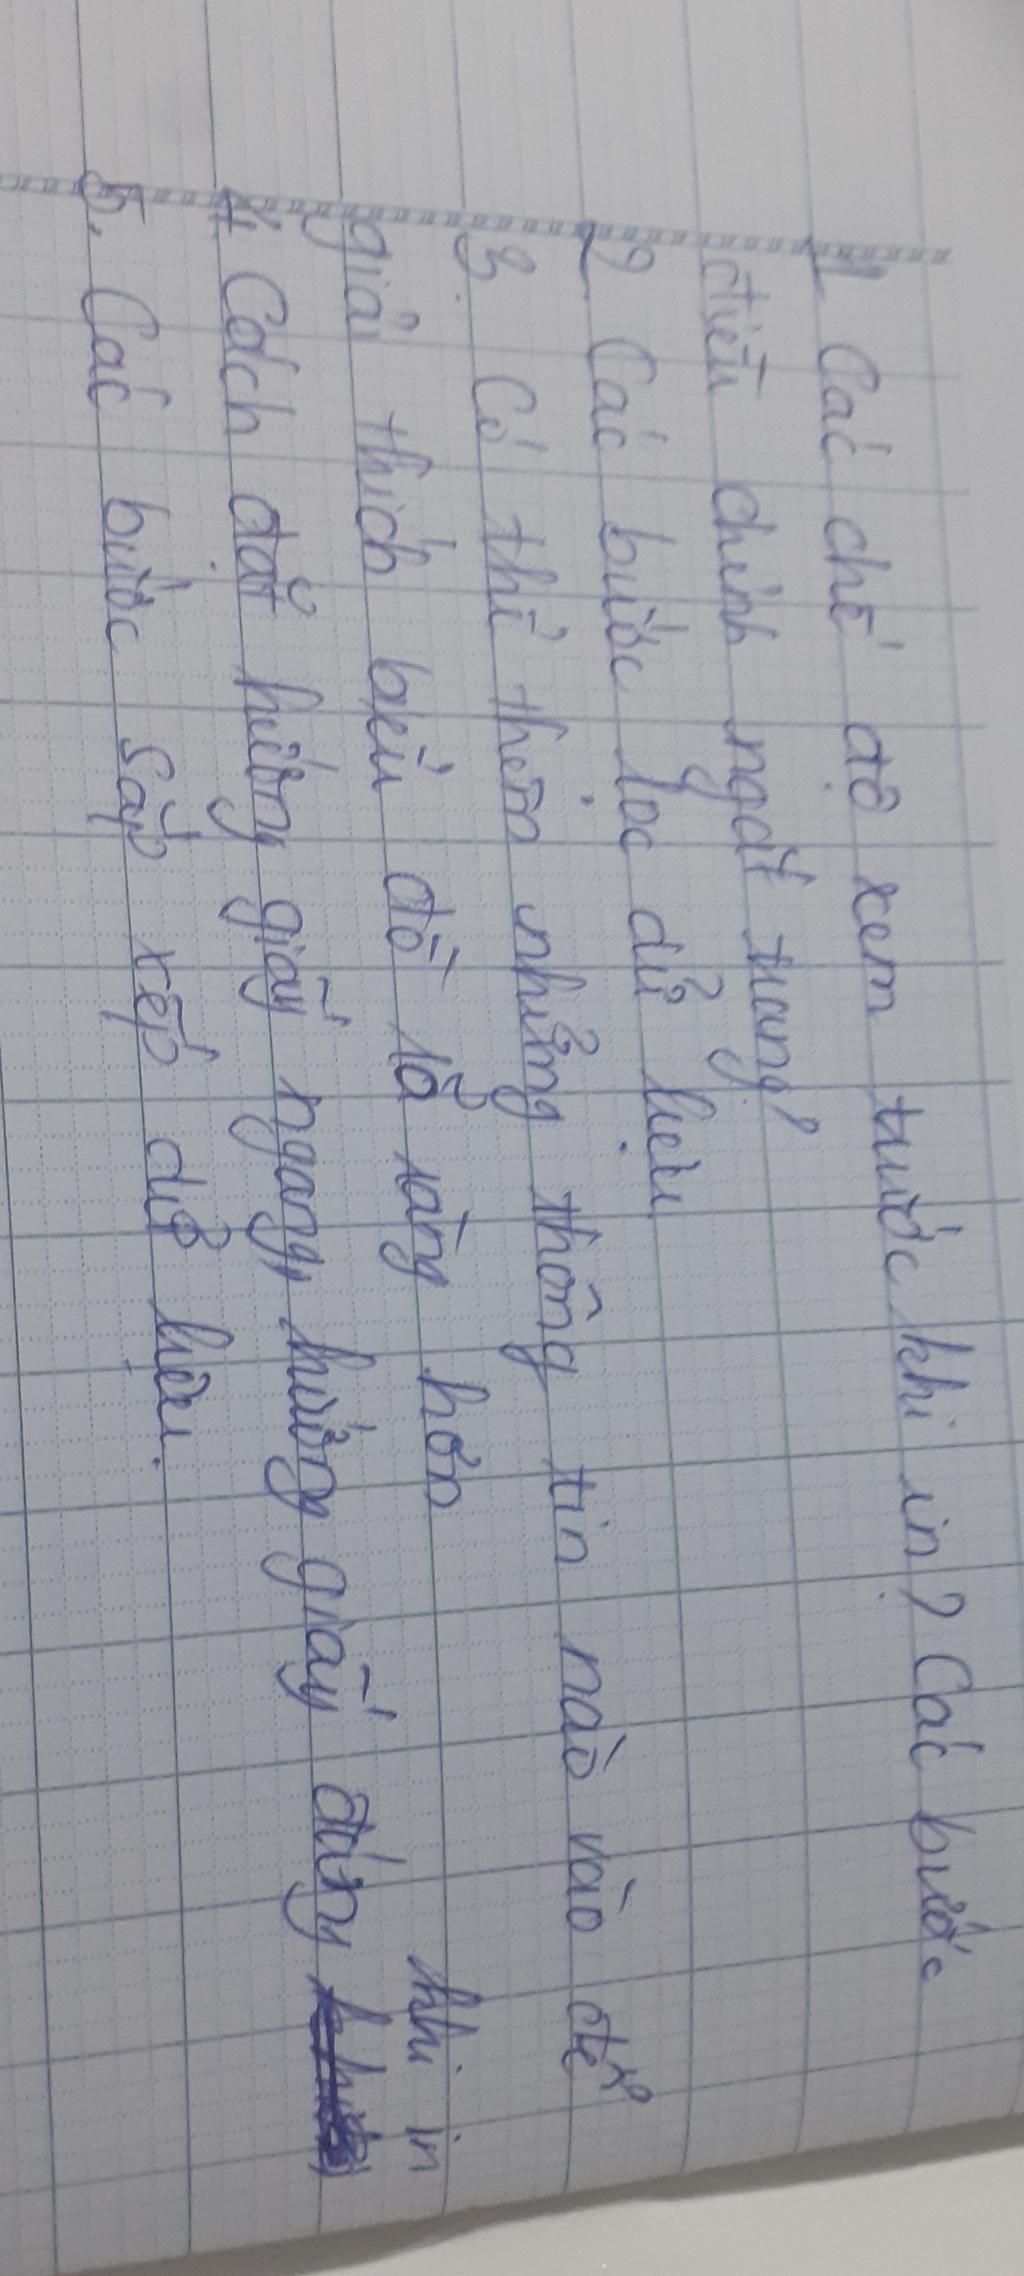 1. Các chế độ xem trước khi in? Các bước
điều chỉnh ngắt trang?
2 Các bước lọc dử liệu
3. Có thể thêm nhửng thông tin nào vào để
giải thích biểu đồ rỏ ràng hơn
4 Cách đặt hướng giấy ngang, hướng giấy đứng khi in
5. Các bước sắp xếp dử liệu.